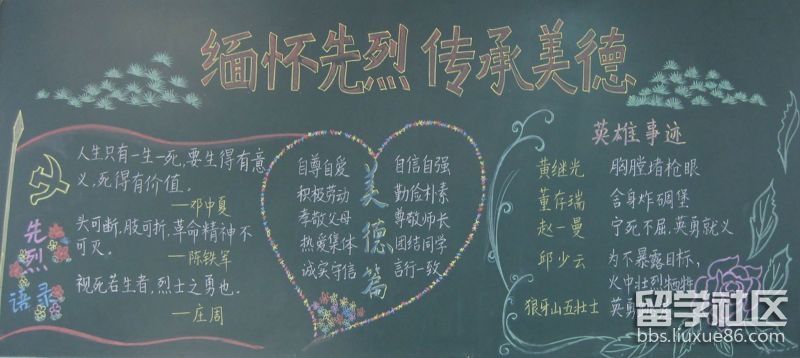 缅怀先烈 传承美德
先烈语录
人生只有一生一死，要生得有意
义，死得有价值。
——邓中夏
头可断，肢可折，革命精神不
可灭。
——陈铁军
视死若生者，烈士之勇也。
——庄周
美德篇
自尊自爱 自信自强
积极劳动 勤俭朴素
孝敬父母 尊敬师长
热爱集体 团结同学
诚实守信 言行一致
英雄事迹
黄继光 胸膛堵枪眼
董存瑞 舍身炸碉堡
赵一曼 宁死不屈，英勇就义
邱少云 为不暴露目标，
火中壮烈牺牲
狼牙山五壮士 英勇
留学社区
bbs.liuxue86.com